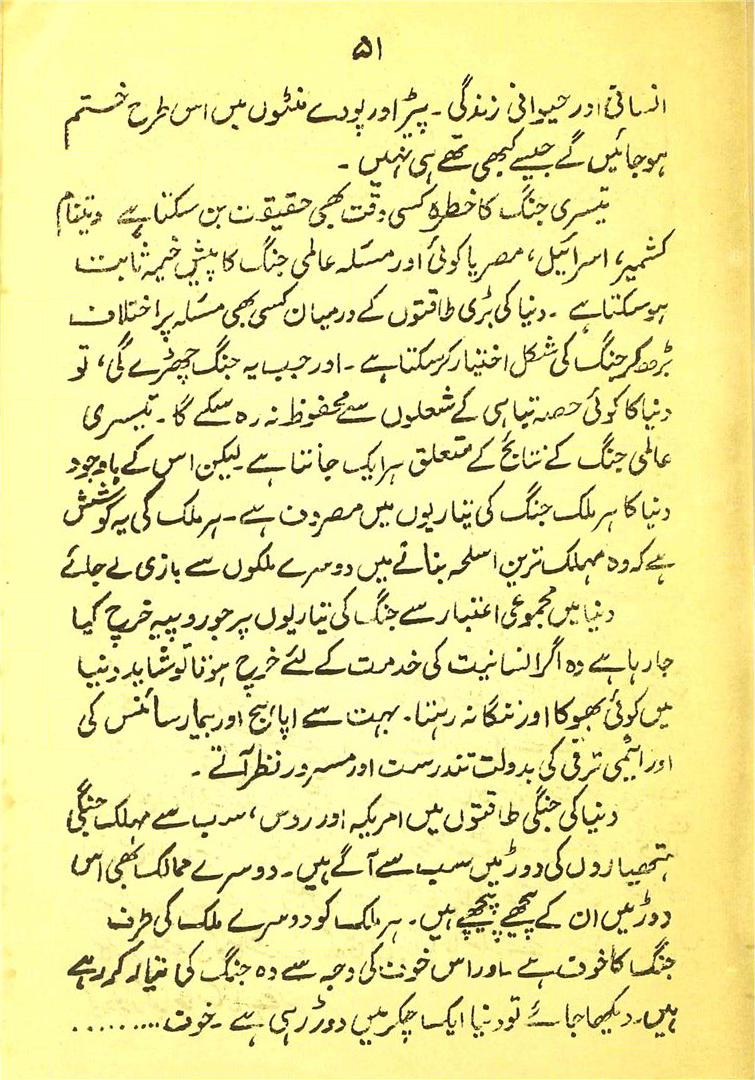 ۵۱
انسانی اور حیوانی زندگی ۔ پیڑ اور پودے منٹوں میں اس طرح ختم
ہو جائیں گے جیسے کبھی تھے ہی نہیں ۔
تیسری جنگ کا خطرہ کسی وقت بھی حقیقت بن سکتا ہے ویتنام
کشمیر، اسرائیل، مصر یا کوئی اور مسئلہ عالمی جنگ کا پیش خیمہ ثابت
ہو سکتا ہے ۔ دنیا کی بڑی طاقتوں کے درمیان کسی بھی مسئلہ پر اختلاف
بڑھ کر جنگ کی شکل اختیار کر سکتا ہے ۔ اور جب یہ جنگ چھڑے گی، تو
دنیا کا کوئی حصہ تباہی کے شعلوں سے محفوظ نہ رہ سکے گا ۔ تیسری
عالمی جنگ کے نتائج کے متعلق ہر ایک جانتا ہے ۔ لیکن اس کے باوجود
دنیا کا ہر ملک جنگ کی تیاریوں میں مصروف ہے ۔ ہر ملک کی یہ کوشش
ہے کہ وہ مہلک ترین اسلحہ بنانے میں دوسرے ملکوں سے بازی لے جائے
دنیا میں مجموعی اعتبار سے جنگ کی تیاریوں پر جو روپیہ خرچ کیا
جا رہا ہے وہ اگر انسانیت کی خدمت کے لئے خرچ ہوتا تو شاید دنیا
میں کوئی بھوکا اور ننگا نہ رہتا ۔ بہت سے اپاہج اور بیمار سائنس کی
اور ایٹمی ترقی کی بدولت تندرست اور مسرور نظر آتے ۔
دنیا کی جنگی طاقتوں میں امریکہ اور روس، سب سے مہلک جنگی
ہتھیاروں کی دوڑ میں سب سے آگے ہیں ۔ دوسرے ممالک بھی اس
دوڑ میں ان کے پیچھے پیچھے ہیں ۔ ہر ملک کو دوسرے ملک کی طرف
جنگ کا خوف ہے ۔ اور اس خوف کی وجہ سے وہ جنگ کی تیاری کر رہے
ہیں ۔ دیکھا جائے تو دنیا ایک چکر میں دوڑ رہی ہے ۔ خوف ..........